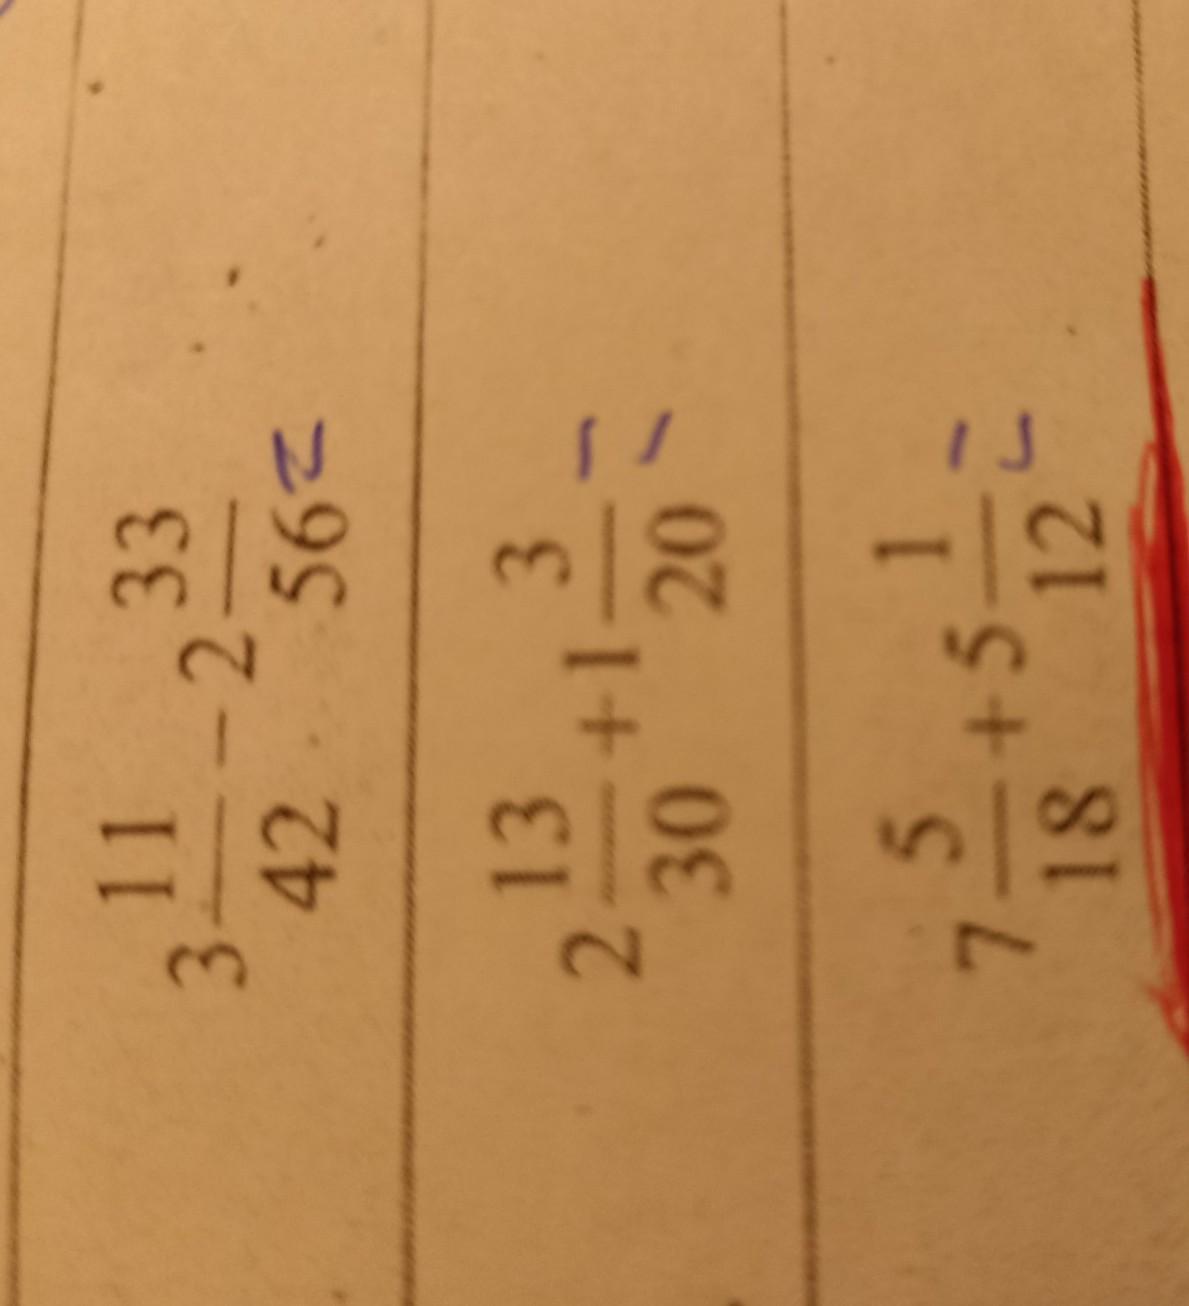 3 11/42 − 2 33/56 =
2 13/30 + 1 3/20 =
7 5/18 + 5 1/12 =